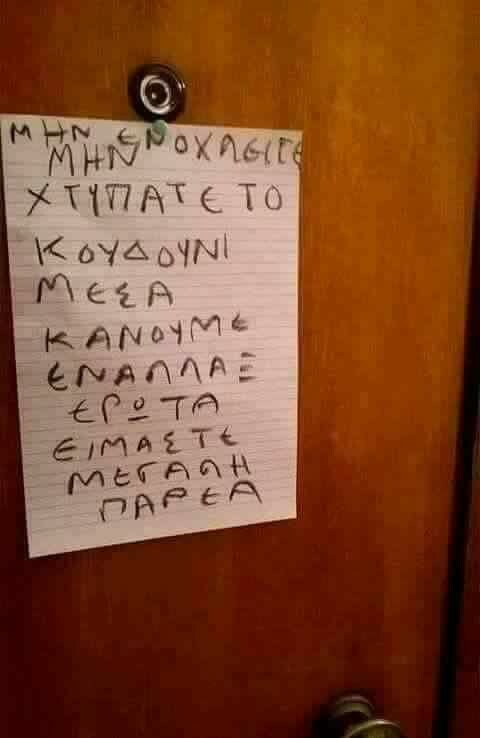 ΜΗΝ ΕΝΟΧΛΕΙΤΕ
ΜΗΝ
ΧΤΥΠΑΤΕ ΤΟ
ΚΟΥΔΟΥΝΙ
ΜΕΣΑ
ΚΑΝΟΥΜΕ
ΕΝΑΛΛΑΞ
ΕΡΩΤΑ
ΕΙΜΑΣΤΕ
ΜΕΓΑΛΗ
ΠΑΡΕΑ